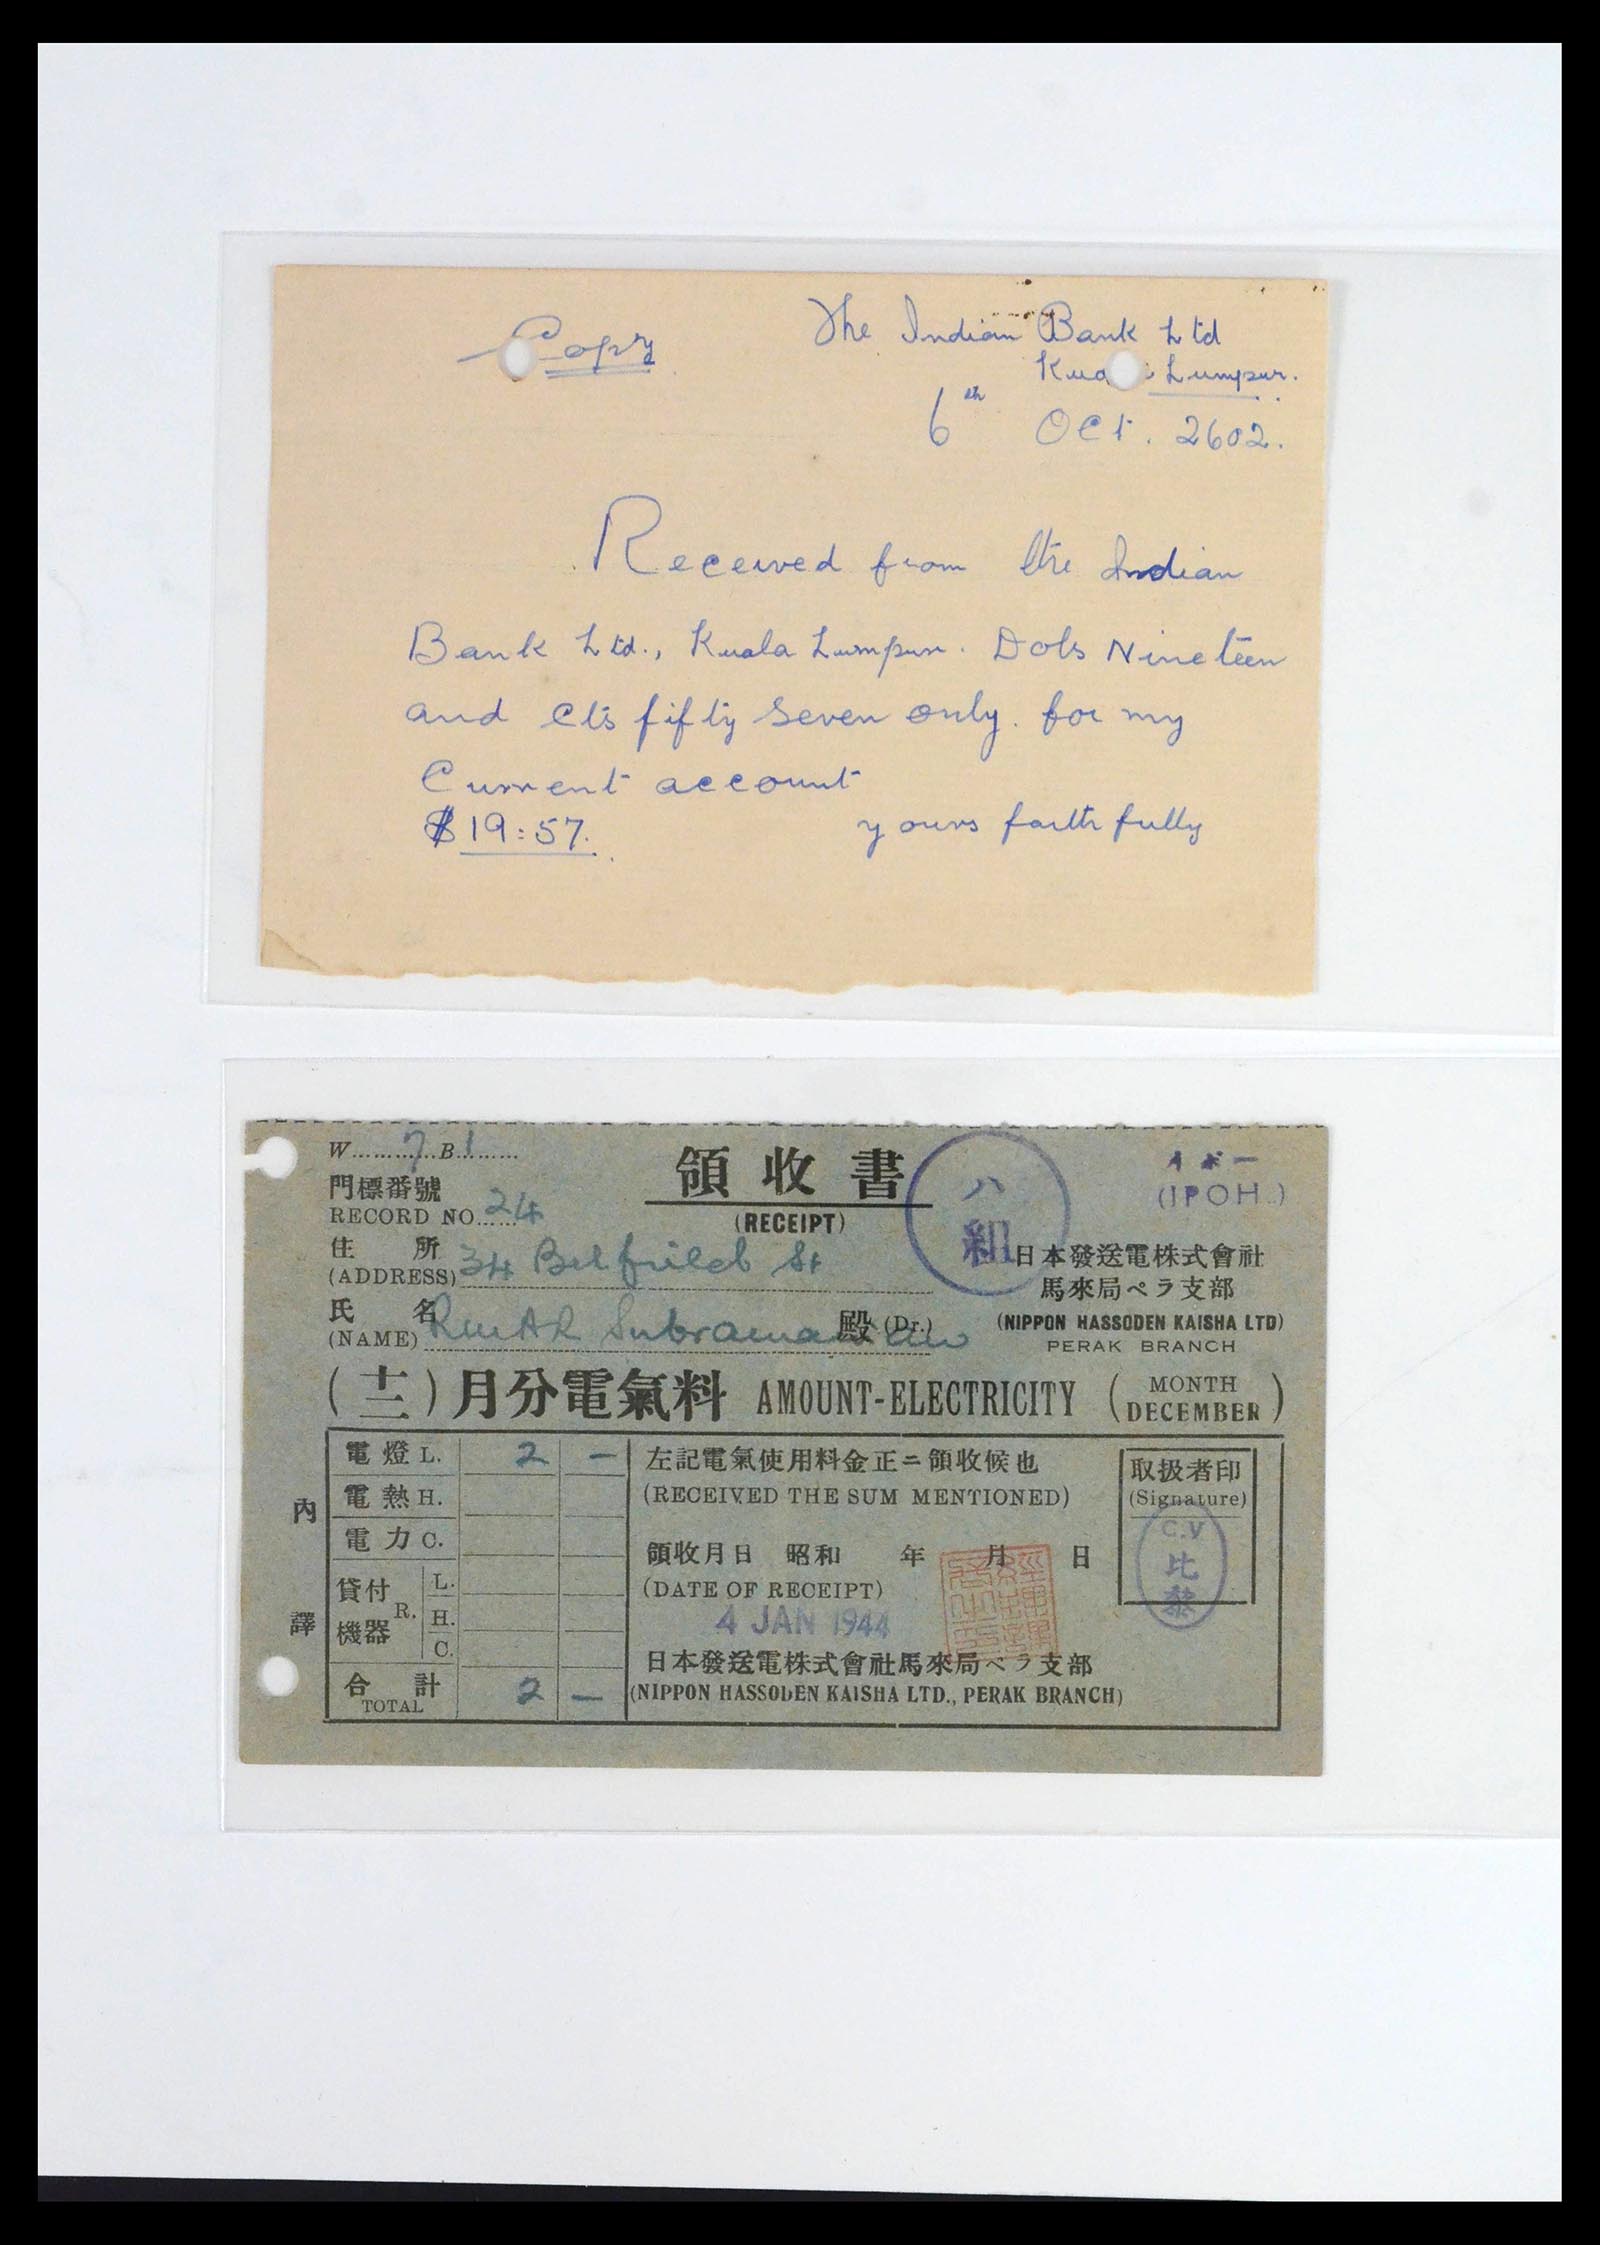 Copy
The Indian Bank Ltd
Kua Lumpur.
6th Oct. 2602.
Received from the Indian
Bank Ltd., Kuala Lumpur. Dols Nineteen
and Cts fifty seven only. for my
Current account
$ 19:57.
yours faithfully
W............7 B.1........
門標番號
RECORD NO...... 24
領收書
(RECEIPT)
ハ
組
イポー
(IPOH.)
住所
(ADDRESS) 34 St
氏名
(NAME)
殿 (Dr.)
日本發送電株式會社
馬來局ペラ支部
(NIPPON HASSODEN KAISHA LTD)
PERAK BRANCH
(十二)月分電氣料 AMOUNT-ELECTRICITY (MONTH DECEMBER)
內譯
電燈 L. 2 —
電熱 H.
電力 C.
貸付機器 R. L.
H.
C.
合計 TOTAL 2 —
左記電氣使用料金正ニ領收候也
(RECEIVED THE SUM MENTIONED)
領收月日 昭和 年 月 日
(DATE OF RECEIPT)
4 JAN 1944
日本發送電株式會社馬來局ペラ支部
(NIPPON HASSODEN KAISHA LTD., PERAK BRANCH)
取扱者印
(Signature)
C.V
比
黎